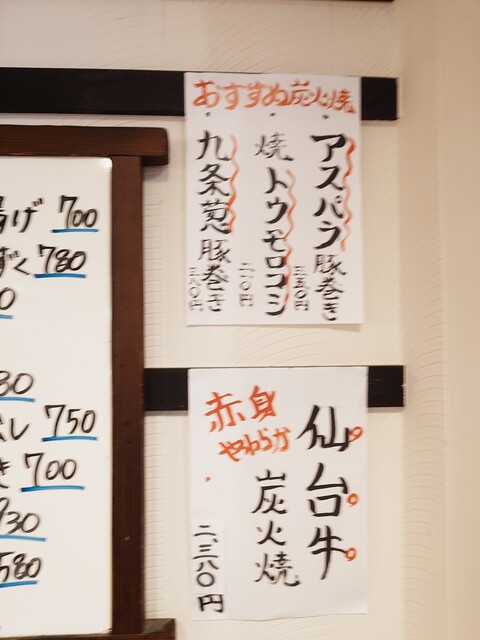 おすすめ炭火焼
アスパラ豚巻き
三五〇円
焼トウモロコシ
九条葱豚巻き
三八〇円
仙台牛
炭火焼
赤身
やわらか
二、三八〇円
げ 700
ずく 780
0
30
し 750
き 700
930
580